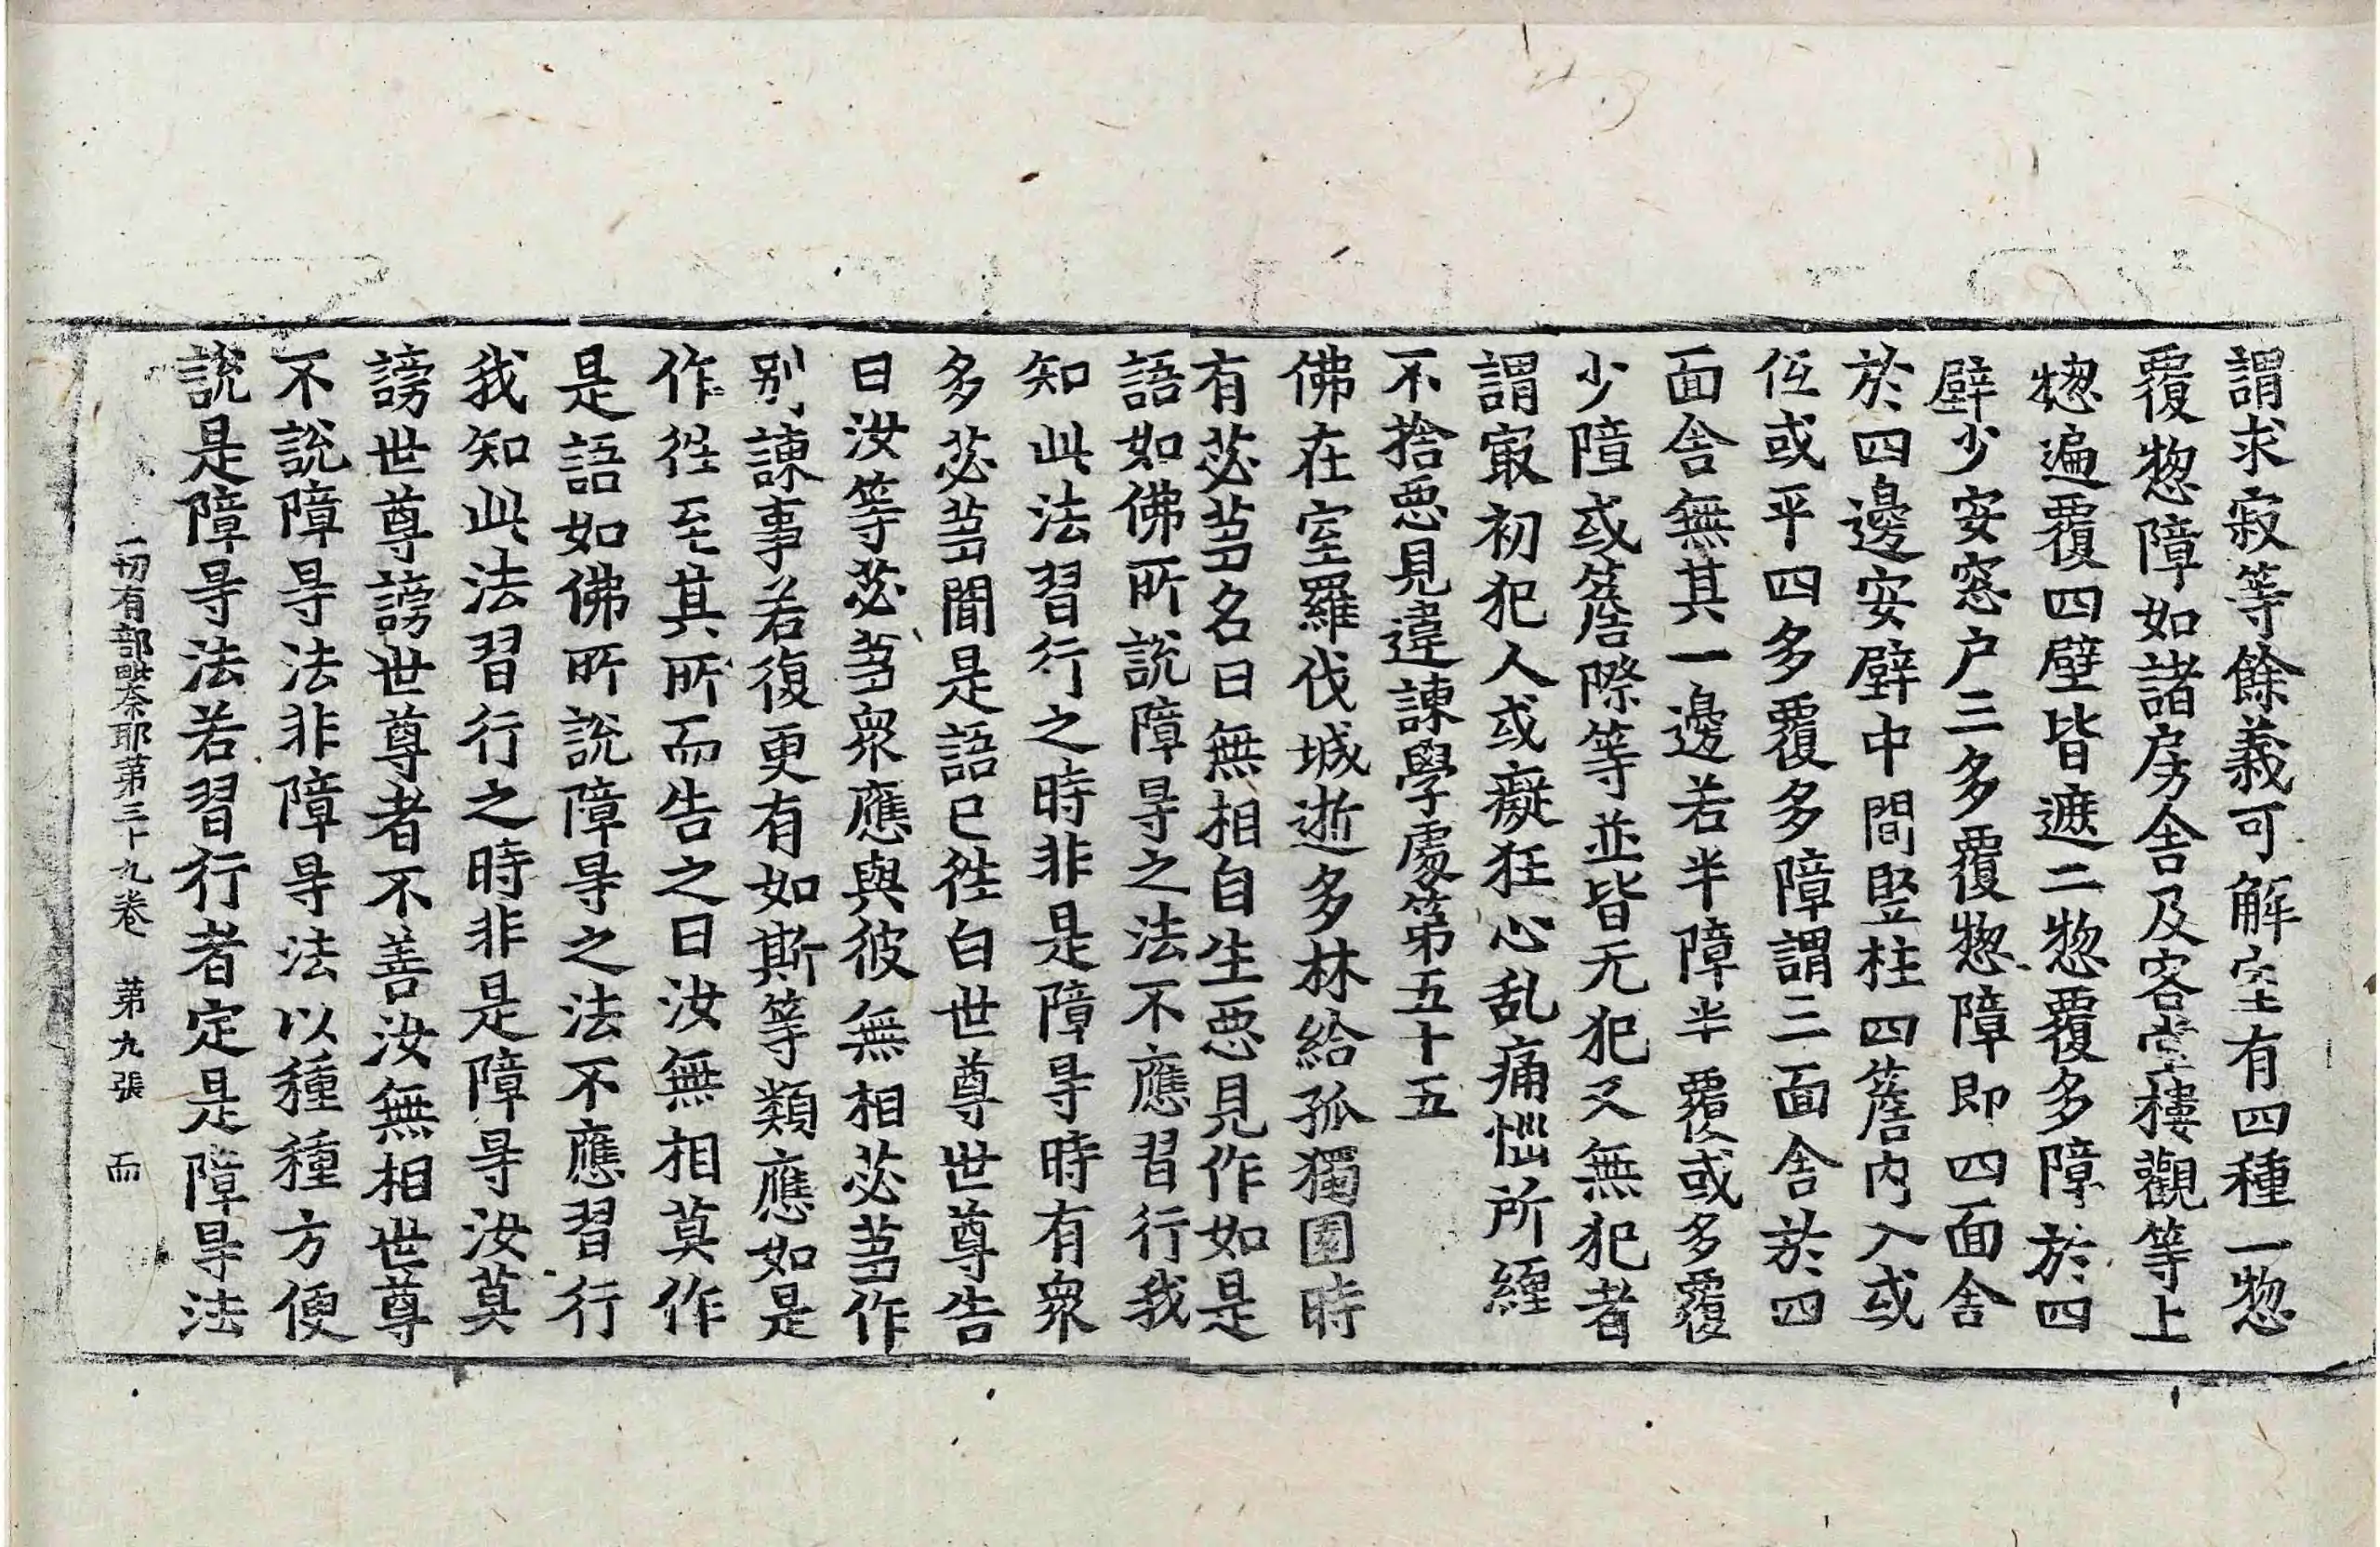 謂求寂等餘義可解室有四種一惣
覆惣障如諸房舍及客堂樓觀等上
惣遍覆四壁皆遮二惣覆多障於四
壁少安窓户三多覆惣障即四面舍
於四邊安壁中間竪柱四簷内入或
低或平四多覆多障謂三面舍於四
面舍無其一邊若半障半覆或多覆
少障或簷際等並皆无犯又無犯者
謂冣初犯人或癡狂心乱痛惱所纏
不捨惡見違諫學處第五十五
佛在室羅伐城逝多林給孤獨園時
有苾芻名曰無相自生惡見作如是
語如佛所説障㝵之法不應習行我
知此法習行之時非是障㝵時有衆
多苾芻聞是語已往白世尊世尊告
曰汝等苾芻衆應與彼無相苾芻作
别諫事若復更有如斯等類應如是
作徃至其所而告之曰汝無相莫作
是語如佛所説障㝵之法不應習行
我知此法習行之時非是障㝵汝莫
謗世尊謗世尊者不善汝無相世尊
不説障㝵法非障㝵法以種種方便
説是障㝵法若習行者定是障㝵法
一切有部毗奈耶苐三十九卷 苐九張 而